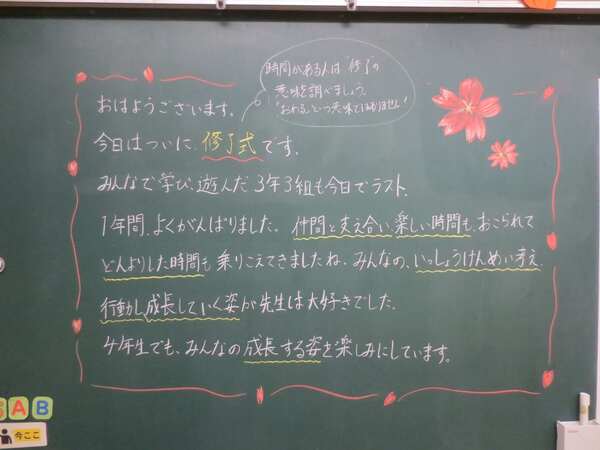 時間がある人は「修了」の
意味を調べましょう。
"おわる"という意味ではありません!
おはようございます。
今日はついに、修了式です。
みんなで学び、遊んだ3年3組も今日でラスト。
1年間、よくがんばりました。仲間と支え合い楽しい時間も、おこられて
どんよりした時間も乗りこえてきましたね。みんなの、いっしょうけんめい考え、
行動し、成長していく姿が先生は大好きでした。
4年生でも、みんなの成長する姿を楽しみにしています。
AB
今ここ